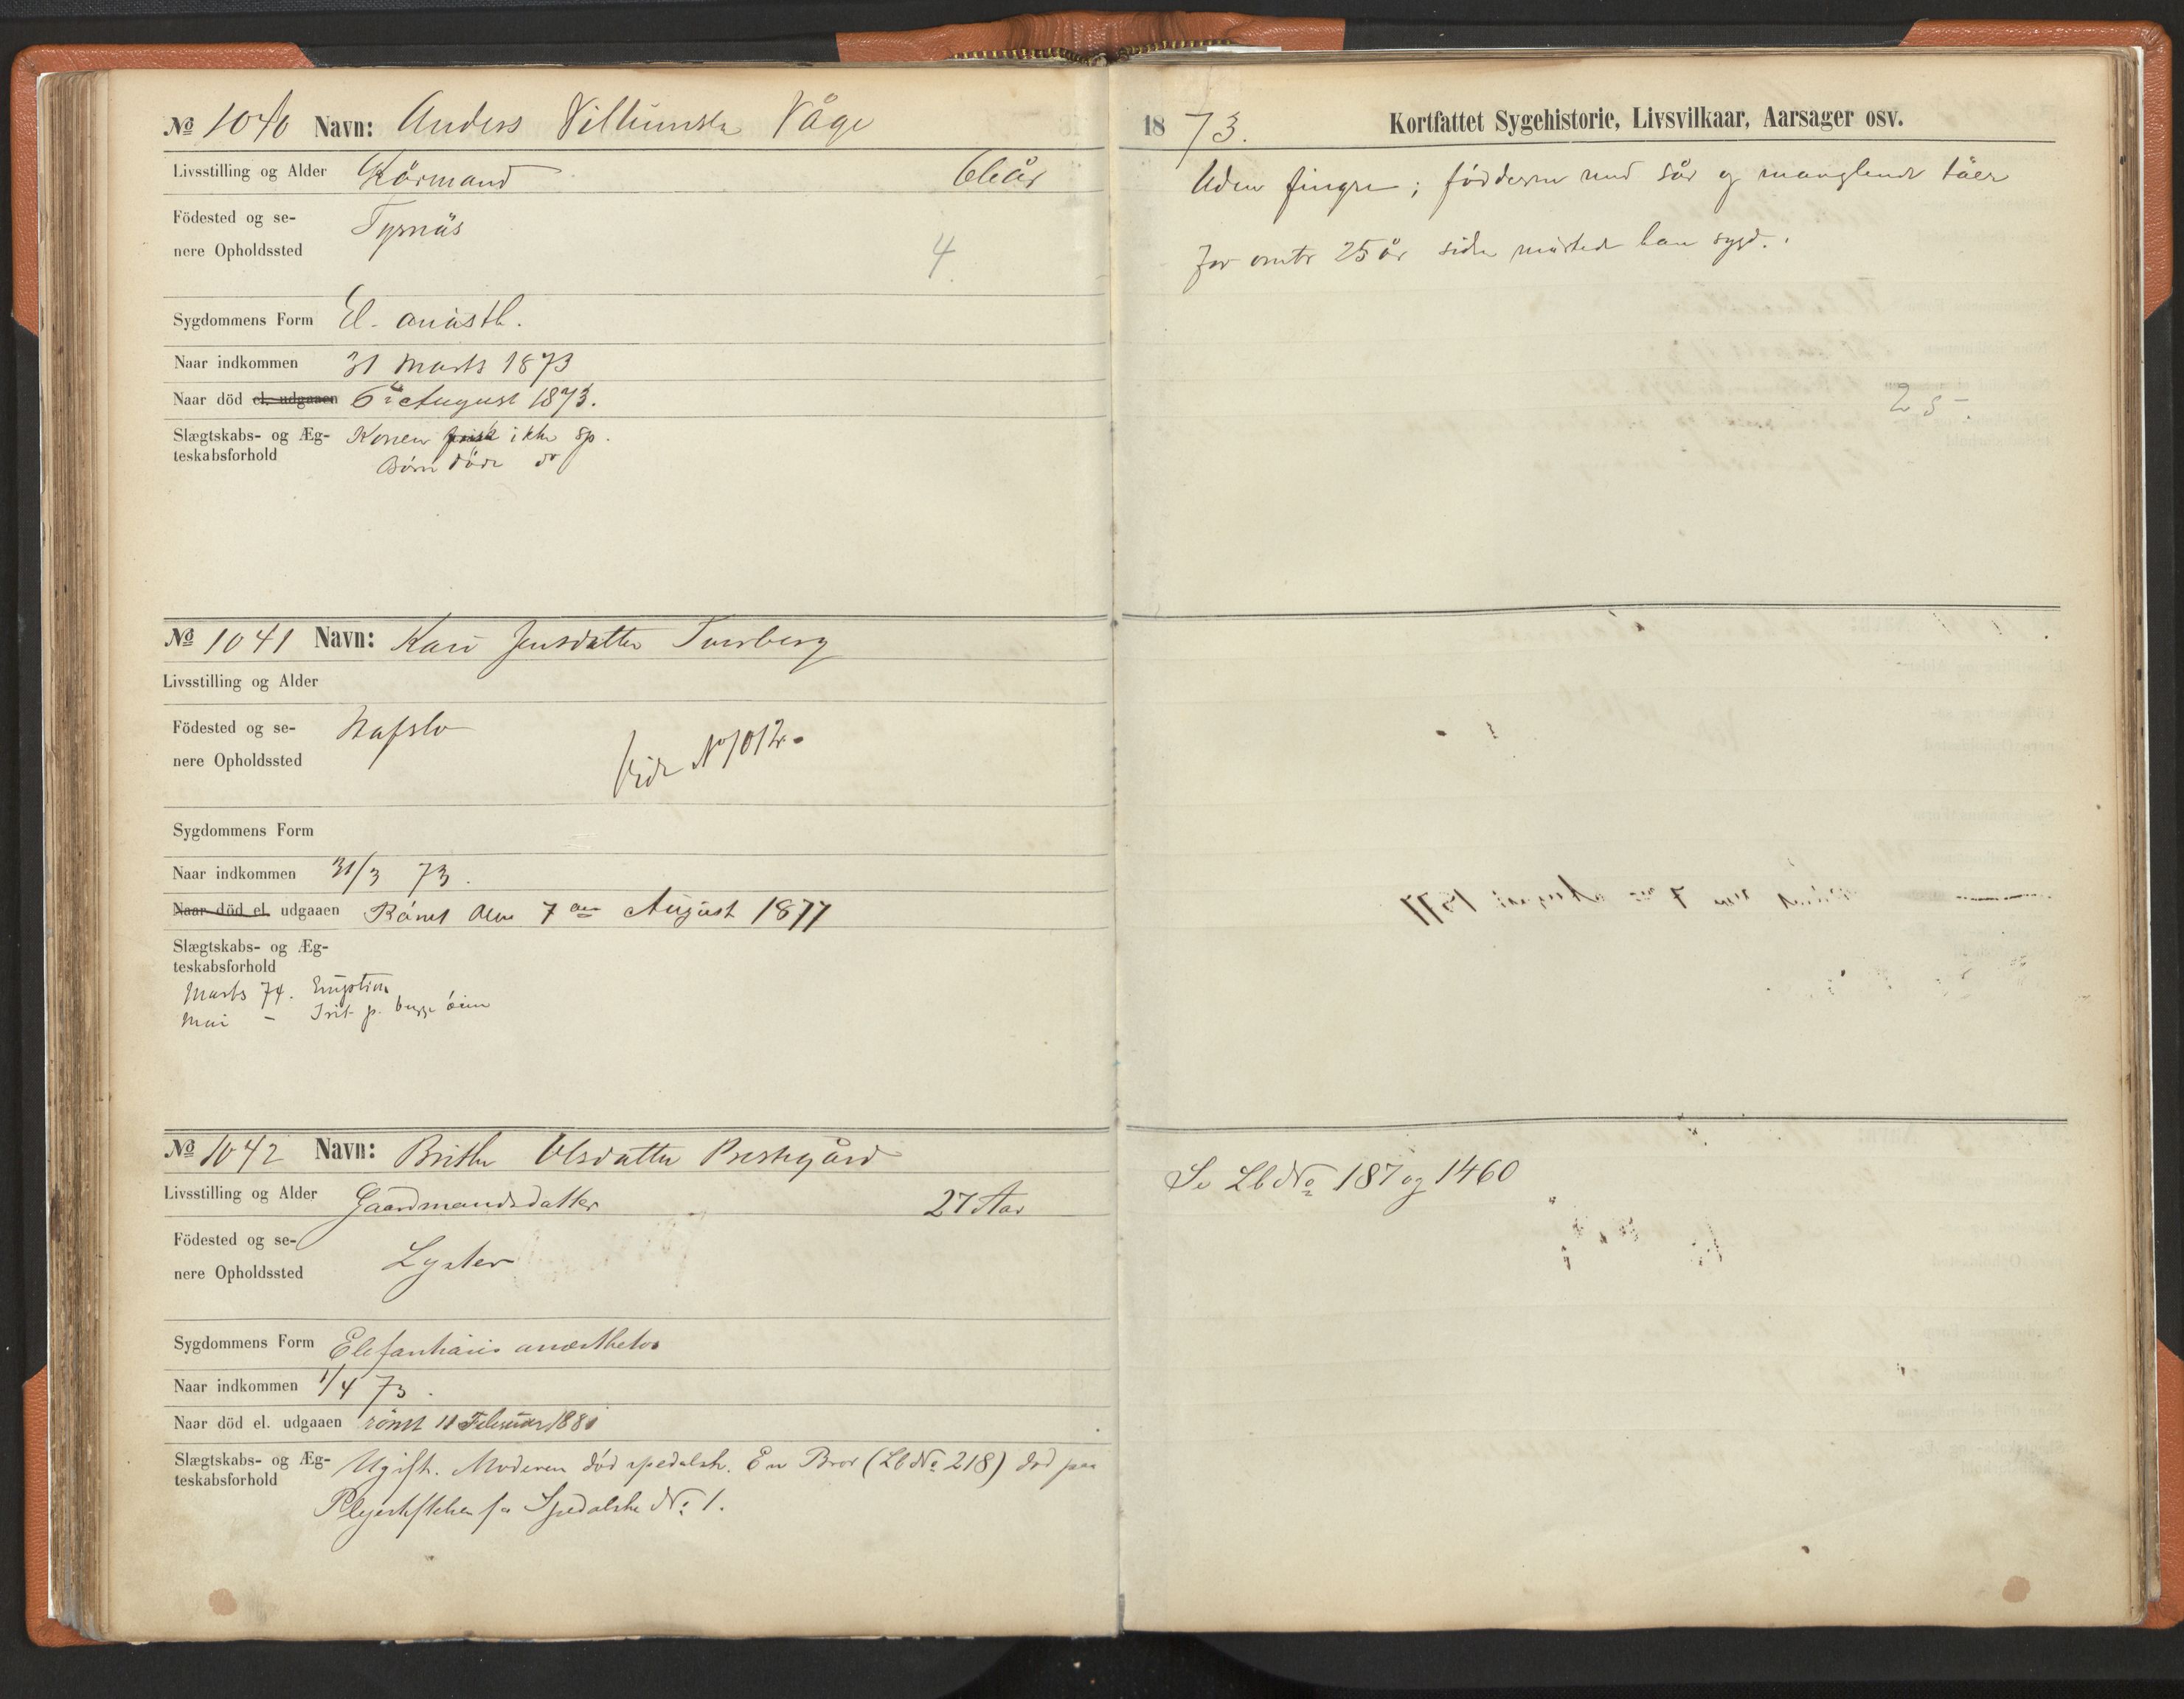 № 1040 Navn: Anders Villumsen Våge
Livsstilling og Alder Kårmand 66 år
Födested og senere Opholdssted Tysnäs
4
Sygdommens Form El. anästh.
Naar indkommen 31 Marts 1873
Naar död el. udgaaen 6te August 1873.
Slægtskabs- og Ægteskabsforhold Konen frisk ikke sp.
Börn döde do
№ 1041 Navn: Kari Jensdatter Tverberg
Livsstilling og Alder
Födested og senere Opholdssted Hafslo
Vide No 1012.
Sygdommens Form
Naar indkommen 31/3 73.
Naar död el. udgaaen Römt den 7de August 1877
Slægtskabs- og Ægteskabsforhold
Marts 74. Eruption
Mai - Irit p. begge öine
№ 1042 Navn: Brithe Olsdatter Prestegård
Livsstilling og Alder Gaardmandsdatter 27 Aar
Födested og senere Opholdssted Lyster
Sygdommens Form Elefantiasis anæsthetos
Naar indkommen 1/4 73.
Naar död el. udgaaen römt 11 Februar 1881
Slægtskabs- og Ægteskabsforhold Ugift. Moderen död spedalsk. En Bror (Lb No 218) död paa
Plejestiftelsen for Spedalske No 1.
1873. Kortfattet Sygehistorie, Livsvilkaar, Aarsager osv.
Uden fingre; födderne med sår og manglende täer
For omtr 25 år siden märkede han sygd.
25-.
Se Lb No 187 og 1460